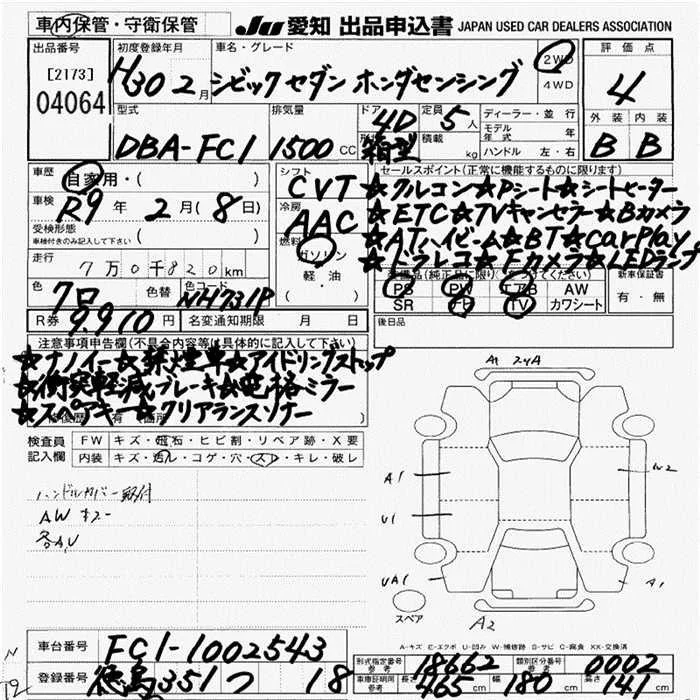 車内保管・守衛保管
JU 愛知 出品申込書 JAPAN USED CAR DEALERS ASSOCIATION
出品番号
[2173]
04064
初度登録年月
H30 2月
車名・グレード
シビックセダン ホンダセンシング
2WD
4WD
評価点
4
型式
DBA-FC1
排気量
1500 CC
ドア
4D
形状
箱型
定員
5人
積載
kg
ディーラー・並行
モデル年式 年
ハンドル 左・右
外装 内装
B B
車歴
自家用・( )
車検
R9年 2月(8日)
受検形態
車検付きのみ記入して下さい ( )
走行
7万0千820km
色
7ロ
色替
色コード
NH731P
R券
9,910円
名変通知期限 月 日
シフト
CVT
冷房
AAC
燃料
ガソリン
軽・油
( )
セールスポイント(正常に機能するものに限ります)
★クルコン★Pシート★シートヒーター
★ETC★TVキャンセラー★Bカメラ
★ATハイビーム★BT★CarPlay
★ドラレコ★Fカメラ★LEDランプ
PS PW エアB AW
SR ナビ TV カワシート
新車保証書
有・無
後日品
注意事項申告欄(不具合内容等は具体的に記入して下さい)
★ナノイー★禁煙車★アイドリングストップ
★衝突軽減ブレーキ★電格ミラー
★スペアキー★クリアランスソナー
検査員記入欄
FW キズ・飛石・ヒビ割・リペア跡・X要
内装 キズ・汚れ・コゲ・穴・スレ・キレ・破レ
ハンドルカバー取付
AWキズ
各AU
A1 2ケA
A1
U1
UA1
W2
A1
A2
スペア
A-キズ E-エクボ U-凹み W-補修跡 S-サビ C-腐食 XX-交換済
車台番号
FC1-1002543
登録番号
徳島 351 つ 18
形式指定番号 参考
18662
類別区分番号 参考
0002
車庫証明用 参考
長さ 465 cm 幅 180 cm 高さ 141 cm